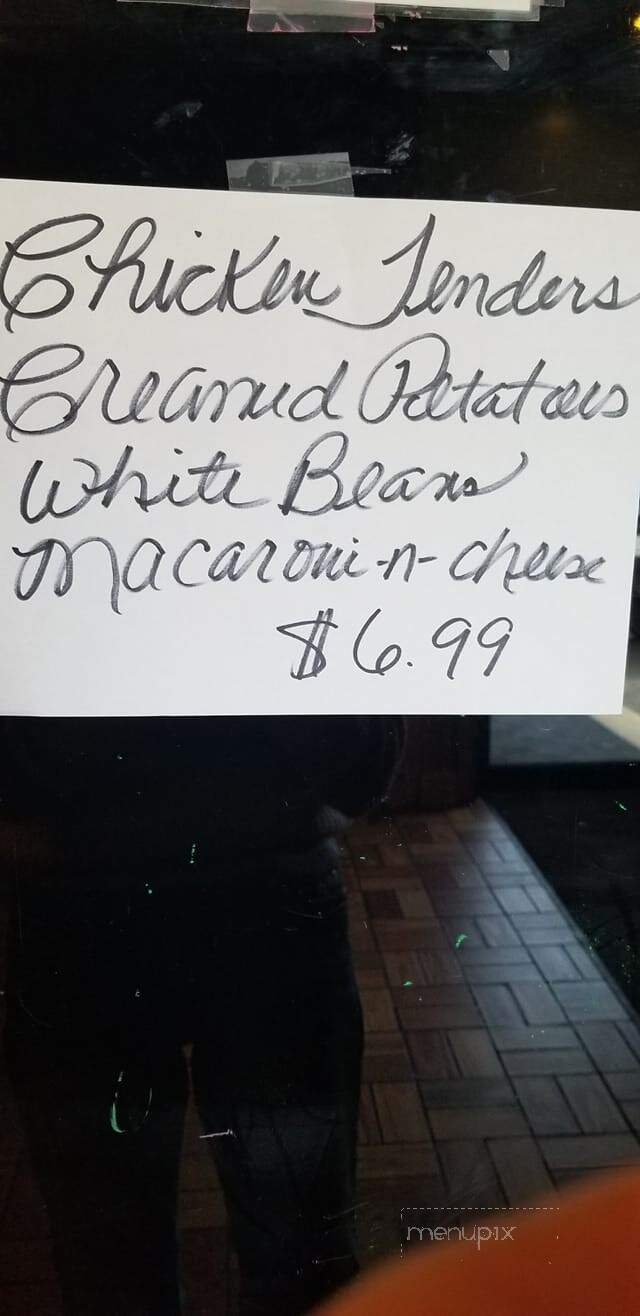 Chicken Tenders
Creamed Potatoes
White Beans
Macaroni-n-cheese
$6.99
menupix